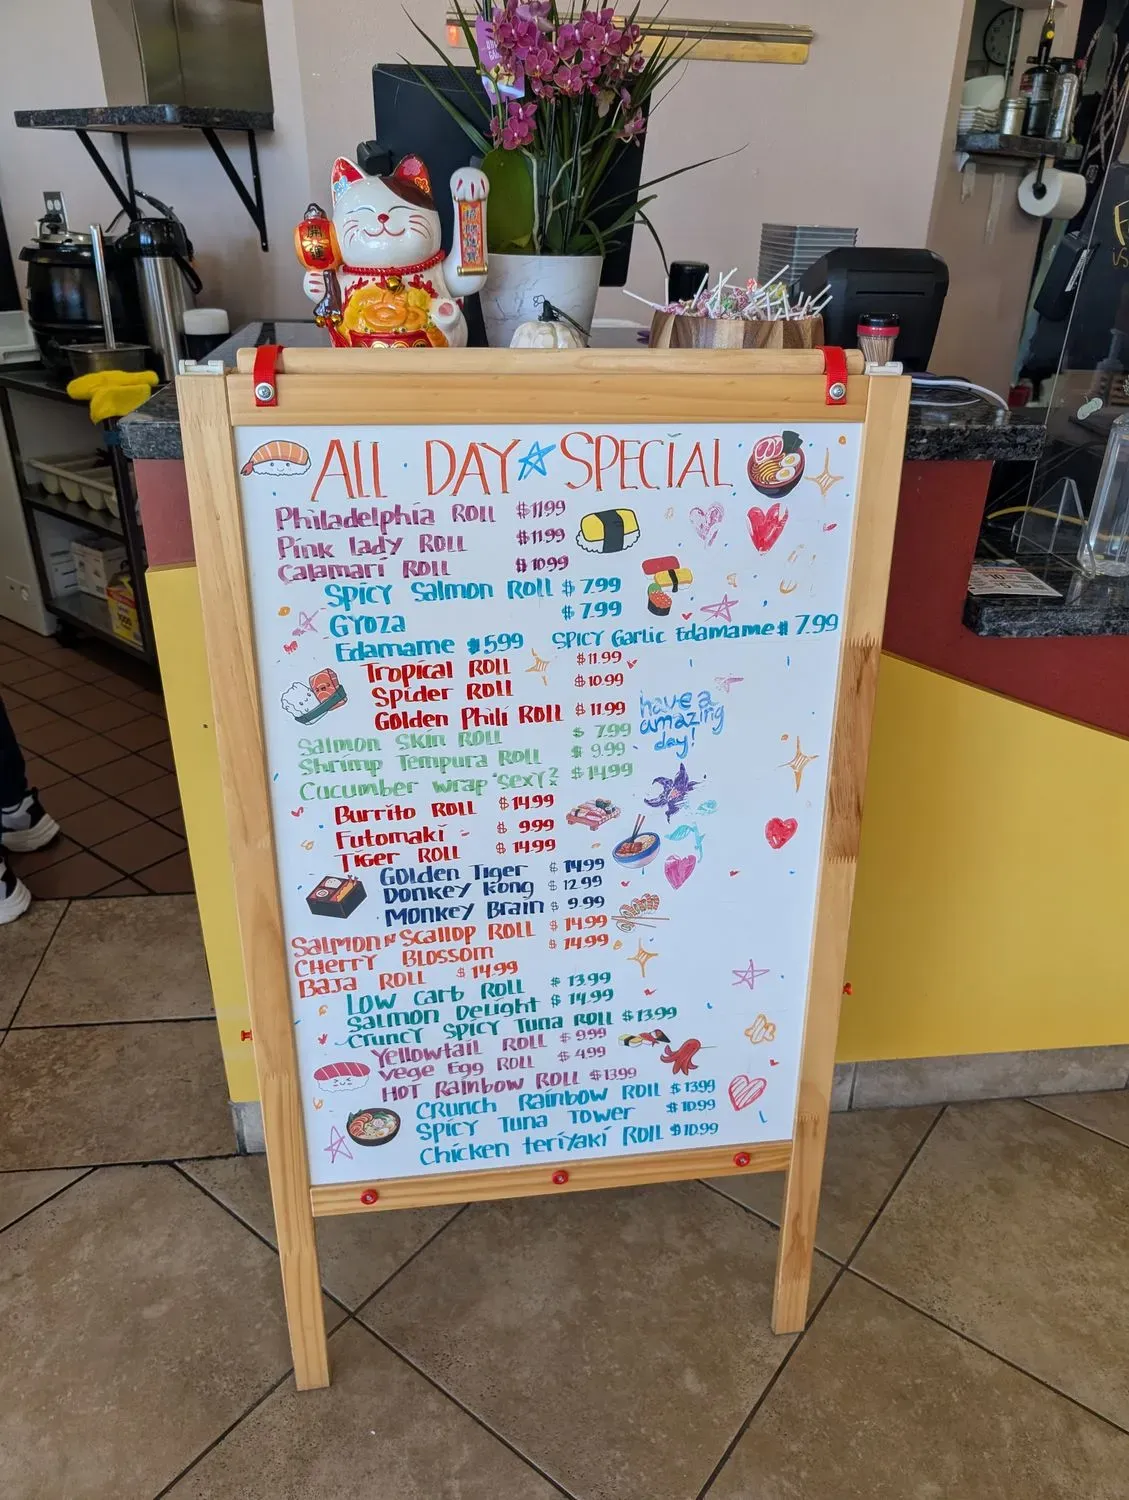 開運
ALL DAY SPECIAL
Philadelphia ROLL $11.99
Pink lady ROLL $11.99
Calamari ROLL $10.99
SPICY Salmon ROLL $7.99
GYOZA $7.99
Edamame $5.99 SPICY Garlic Edamame $7.99
Tropical ROLL $11.99
Spider ROLL $10.99
Golden Phili ROLL $11.99
have a
amazing
day!
Salmon Skin ROLL $7.99
Shrimp Tempura ROLL $9.99
Cucumber wrap "Sexy" $14.99
Burrito ROLL $14.99
Futomaki - $9.99
Tiger ROLL $14.99
Golden Tiger $14.99
Donkey Kong $12.99
Monkey Brain $9.99
SALMON N SCALLOP ROLL $14.99
CHERRY BLOSSOM $14.99
BAJA ROLL $14.99
LOW Carb ROLL $13.99
SALMON DELIGHT $14.99
CRUNCY SPICY TUNA ROLL $13.99
Yellowtail ROLL $9.99
Vege Egg ROLL $4.99
HOT Rainbow ROLL $13.99
CRUNCH Rainbow ROLL $13.99
SPICY TUNA TOWER $10.99
Chicken teriyaki ROLL $10.99